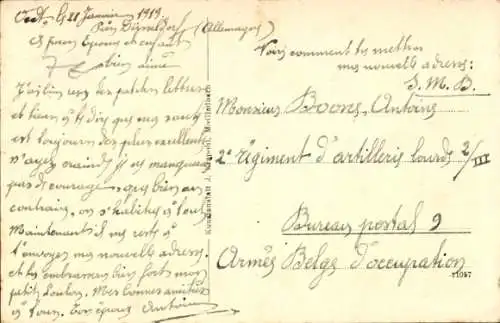 le 21 Janvier 1919
Près Düsseldorf (Allemagne)
bien aimée
J'ai bien reçu tes petites lettres
et bien n'te dire que ma santé
est toujours des plus excellentes
n'ayez crainte je ne manque
pas de courage, que bien au
contraire, on s'habitue à tout
Maintenant il me reste à
t'envoyer ma nouvelle adresse
et t'embrasser bien fort mon
petit Loulou. Mes bonnes amitiés
à tous. Ton époux Antoine
Voici comment tu mettras
ma nouvelle adresse:
S.M.B.
Monsieur Boons, Antoine
2e régiment d'artillerie lourde 2/III
Bureau postal 9
Armée Belge d'occupation
Kunstanstalt J.